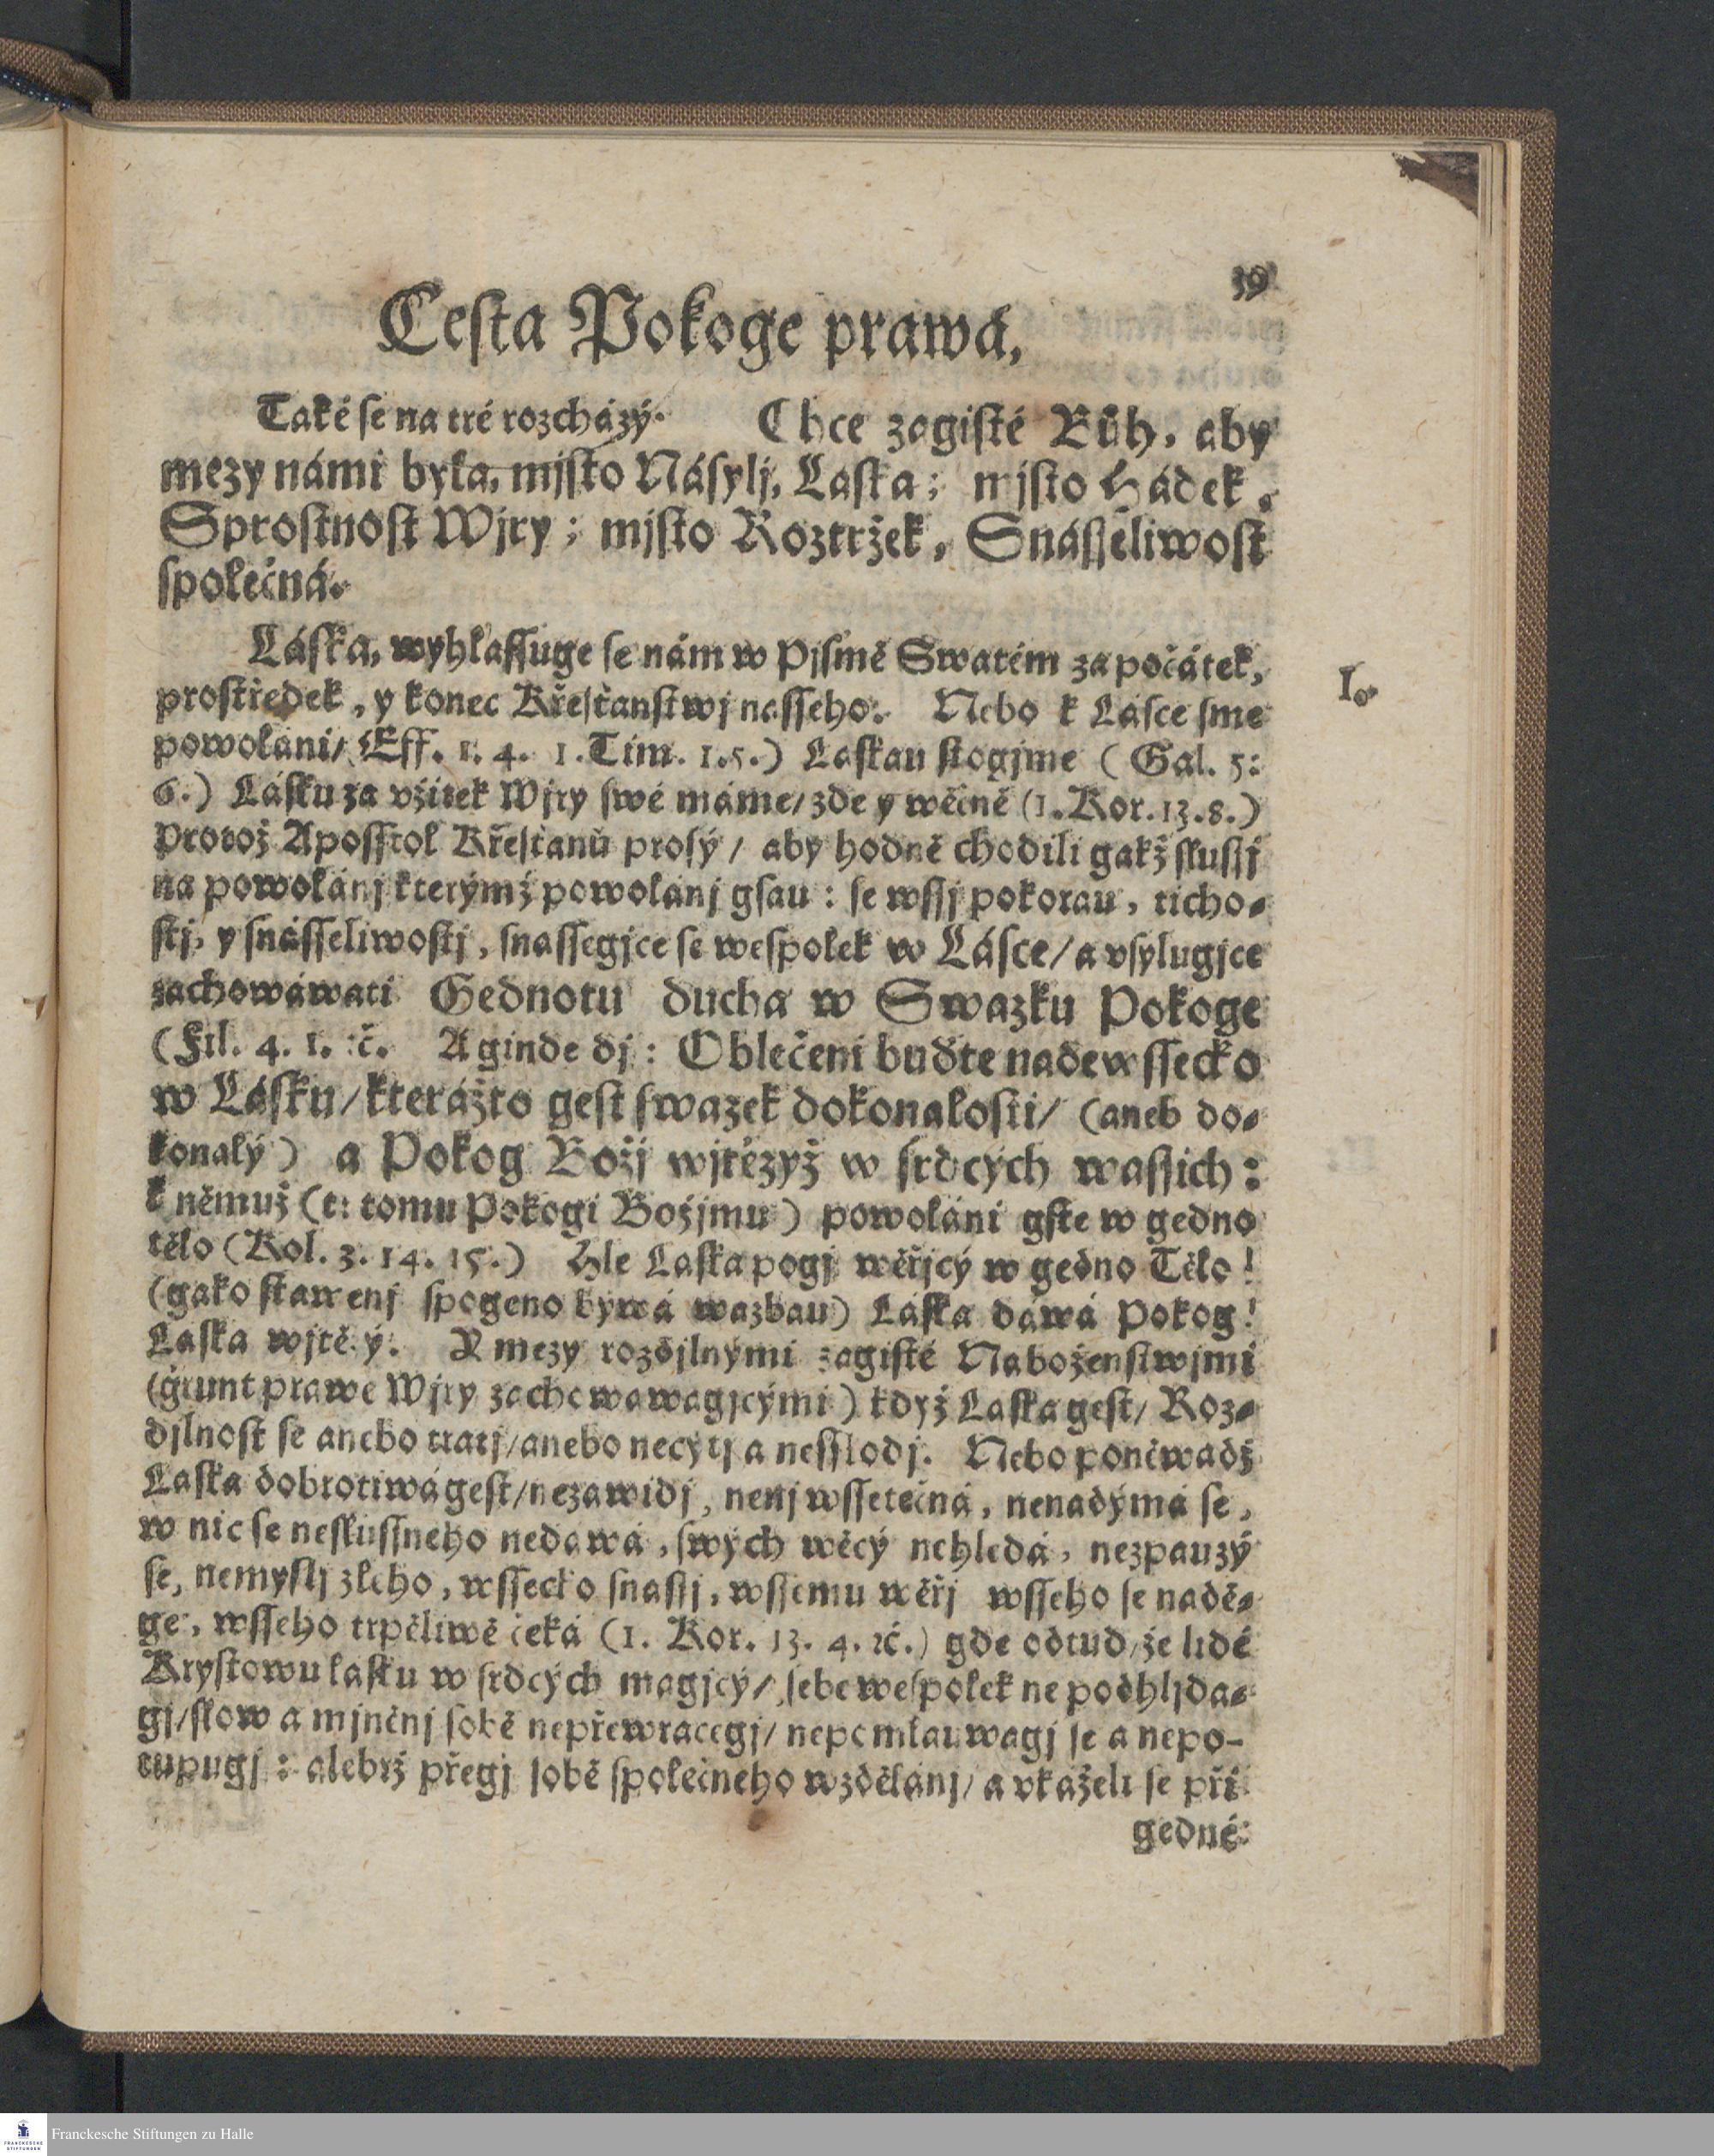 39
Cesta Pokoge prawá,
Také se na tré rozcházý. Chce zagisté Bůh, aby
mezy námi byla, mjsto Násylj, Laska; mjsto Hádek,
Sprostnost Wjry; mjsto Roztržek, Snásseliwost
společná.
Láska, wyhlassuge se nám w Pjsmě Swatém za počátek,
I.
prostředek, y konec Křesťanstwj nasseho. Nebo k Lásce sme
powoláni/ Eff. 1. 4. 1. Tim. 1. 5.) Laskau stogjme (Gal. 5:
6.) Lásku za vžitek Wjry swé máme/ zde y wěčně (1. Kor. 13. 8.)
Protož Aposstol Křesťanů prosý/ aby hodně chodili gakž slussj
na powolánj kterýmž powolánj gsau: se wssj pokorau, ticho-
stj, y snásseliwostj, snassegjce se wespolek w Lásce/ a vsylugjce
zachowáwati Gednotu ducha w Swazku Pokoge
(Fil. 4. 1. ꝛč. A ginde dj: Oblečeni buďte nadewssecko
w Lásku/ kterážto gest swazek dokonalosti/ (aneb do-
konalý) a Pokog Božj wjtězyž w srdcých wassich:
k němuž (t: tomu Pokogi Božjmu) powoláni gste w gedno
tělo (Kol. 3. 14. 15.) Hle Laska pogj wěřjcý w gedno Tělo!
(gako stawenj spogeno býwá wazbau) Láska dáwá Pokog!
Laska wjtě ý. A mezy rozdjlnými zagisté Naboženstwjmi
(grunt prawe Wjry zachowawagjcými) když Laska gest/ Roz-
djlnost se anebo tratj/ anebo necýtj a nesskodj. Nebo poněwadž
Laska dobrotiwá gest/ nezawidj, nenj wssetečná, nenadýmá se,
w nic se neslussneho nedáwá, swých wěcý nehledá, nezpauzý
se, nemyslj zleho, wssecko snassj, wssemu wěřj wsseho se nadě-
ge, wsseho trpěliwě čeká (1. Kor. 13. 4. ꝛč.) gde odtud, že lidé
Krystowu lasku w srdcých magjcý/ sebe wespolek ne podhljda-
gj/ slow a mjněnj sobě nepřewracegj/ nepomlauwagj se a nepo-
tupugj: alebrž přegj sobě společneho wzdělánj/ a vkaželi se při
gedné
Franckesche Stiftungen zu Halle